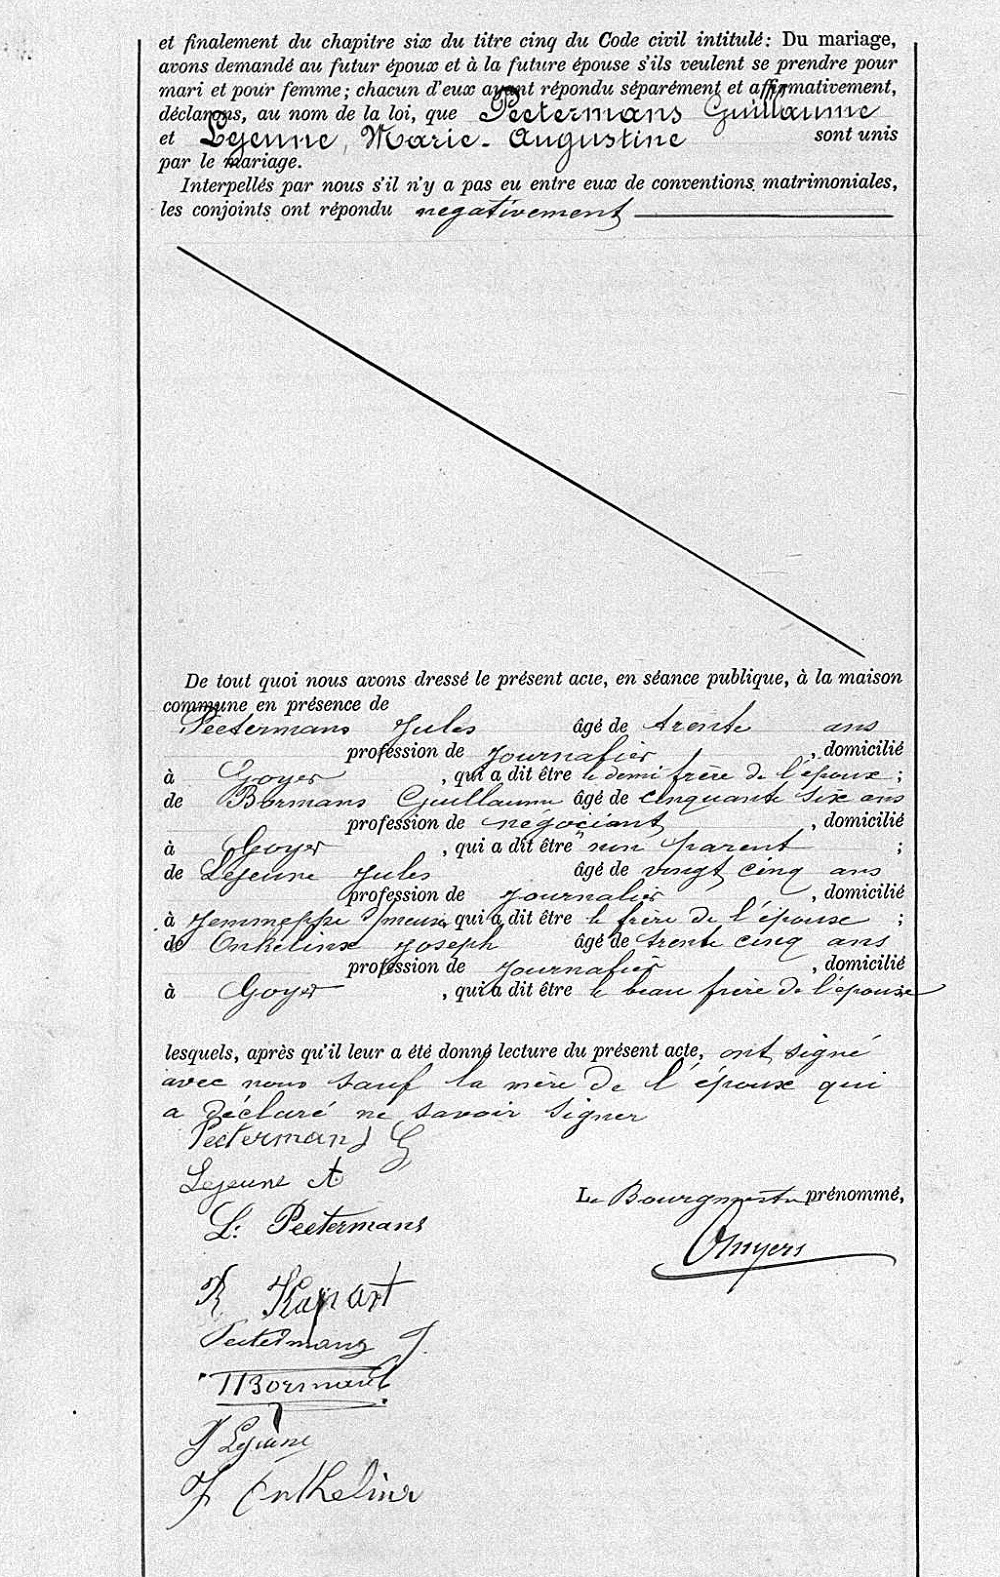 et finalement du chapitre six du titre cinq du Code civil intitulé: Du mariage,
avons demandé au futur époux et à la future épouse s'ils veulent se prendre pour
mari et pour femme; chacun d'eux ayant répondu séparément et affirmativement,
déclarons, au nom de la loi, que Peetermans Guillaume
et Lejeune, Marie-Augustine sont unis
par le mariage.
Interpellés par nous s'il n'y a pas eu entre eux de conventions matrimoniales,
les conjoints ont répondu negativement
De tout quoi nous avons dressé le présent acte, en séance publique, à la maison
commune en présence de
Peetermans Jules âgé de trente ans
profession de journalier, domicilié
à Goyer, qui a dit être le demi frère de l'époux;
de Bormans Guillaume âgé de cinquante six ans
profession de négociant, domicilié
à Goyer, qui a dit être non parent;
de Lejeune Jules âgé de vingt cinq ans
profession de journalier, domicilié
à Jemmeppe s/meuse, qui a dit être le frère de l'épouse;
de Onkelinx Joseph âgé de trente cinq ans
profession de journalier, domicilié
à Goyer, qui a dit être le beau frère de l'épouse
lesquels, après qu'il leur a été donné lecture du présent acte, ont signé
avec nous sauf la mère de l'époux qui
a déclaré ne savoir signer
Peetermans G
Lejeune A
Le Bourgmestre prénommé,
L. Peetermans
R Hapart
Peetermans J.
Bormans
J Lejeune
J Onkelinx